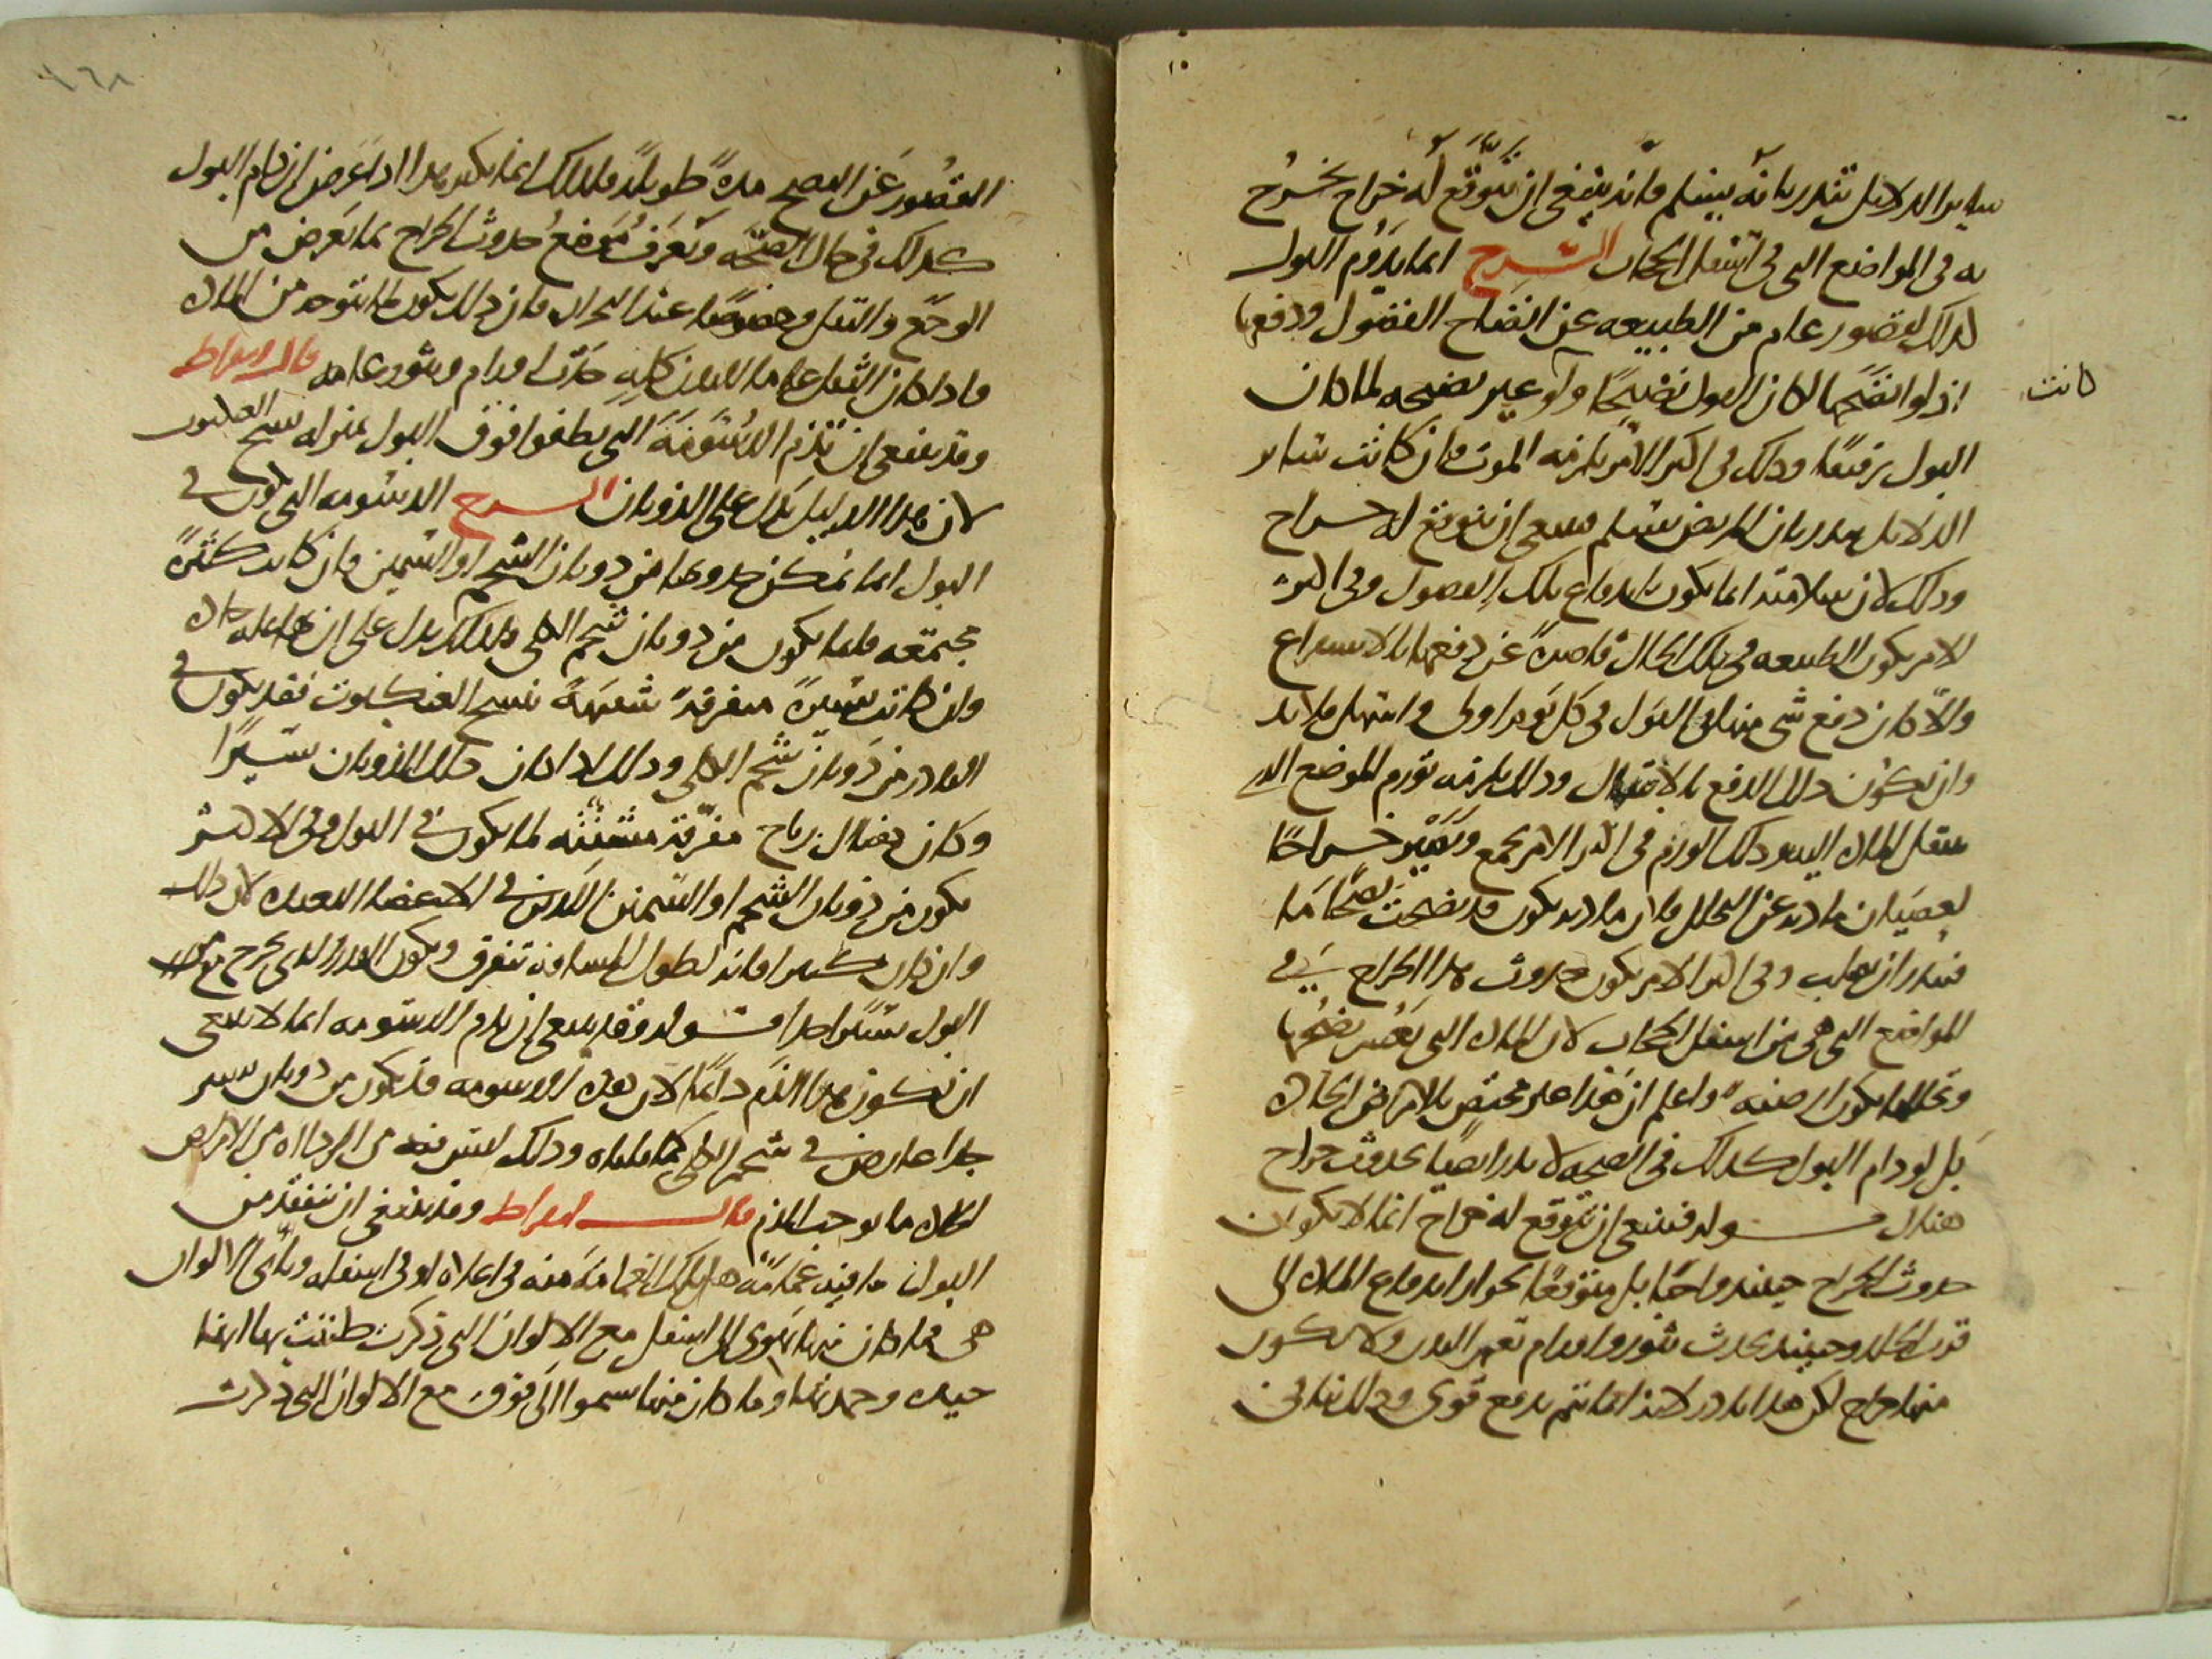 ساير الدلايل تنذر بانه يسلم فانه ينبغى ان يتوقع له خراج يخرج
به فى المواضع التى فى اسفل الحجاب الشرح انما يدوم البول
كذلك لقصور عام من الطبيعه عن انضاج الفضول ودفعها
اذ لو انضجها لكان البول نضيجا ولو غير نضيجه لما كان
كانت
البول رقيقا وذلك فى اكثر الامر يلزمه الموت فان كانت ساير
الدلايل تنذر بان المريض يسلم فينبغى ان يتوقع له خراج
وذلك لان سلامته انما يكون باندفاع تلك الفضول وفى اكثر
الامر يكون الطبيعه فى تلك الحال قاصرة عن دفعها بالاسراع
والا كان دفع شى منها فى البول فى كل يوم اولى واسهل فلا بد
وان يكون ذلك الدفع بالانتقال وذلك يلزمه تورم الموضع الذى
ينتقل الماده اليه وذلك الورم فى اكثر الامر يجمع ويصير خراجا
لعصيان مادته عن التحلل فان مادته يكون قد نضجت نضجا ما
فيندر ان يصلب وفى اكثر الامر يكون حدوث هذا الخراج فى
المواضع التى هى من اسفل الحجاب لان الماده التى يعسر نضجها
وتحللها يكون ارضيه واعلم ان هذا غير مختص بالامراض الحاده
بل لو دام البول كذلك فى الصحه لا نذر ايضا بحدوث خراج
هناك قوله فينبغى ان يتوقع له خراج انما لا يكون
حدوث الخراج حينئذ واجبا بل متوقعا لجواز اندفاع الماده الى
قرب الجلد وحينئذ يحدث بثور واورام تعم البدن ولا يكون
منها خراج لكن هذا نادر لانه انما يتم بدفع قوى وذلك ينافى
القصور عن النضج مدة طويلة فلذلك انما يكثر هذا اذا عرض ان دام البول
كذلك فى حال الصحه ويعرف موضع حدوث الخراج بما يعرض من
الوجع والثقل وخصوصا عند البحران فان ذلك يكون لما يتوجه من الماده
فاذا كان الثقل عاما للبدن كله حدثت اورام وبثور عامه قال ابقراط
وقد ينبغى ان تذم الدسومه التى تطفوا فوق البول بمنزله نسج العنكبوت
لان هذا الدليل يدل على الذوبان الشرح الدسومه التى يكون فى
البول انما يمكن حدوثها من ذوبان الشحم او السمين فان كانت كثيرة
مجتمعه فانما يكون من ذوبان شحم الكلى فلذلك يدل على ان هناك حال
وان كانت يسيرة متفرقة شبيهة بنسج العنكبوت فقد يكون فى
النادر من ذوبان شحم الكلى وذلك اذا كان ذلك الذوبان يسيرا
وكان هناك رياح مفرقة مشتته لما يكون فى البول وفى الاكثر
يكون من ذوبان الشحم او السمين اللذين فى الاعضا البعيده لان ذلك
وان كان كثيرا فانه لطول المسافه يتفرق ويكون القدر الذى يخرج مع
البول يسيرا جدا قوله وقد ينبغى ان يذم الدسومه انما لا ينبغى
ان يكون هذا الذم دائما لان هذه الدسومه قد يكون من ذوبان يسير
جدا عارض فى شحم الكلى كما قلناه وذلك ليس فيه من الرداءه من الامراض
الحاده ما يوجب الذم قال ابقراط وقد ينبغى ان يتفقد من
البول ما فيه غمامة هل تلك الغمامة منه فى اعلاه او فى اسفله وباى الالوان
هى فما كان منها يهوى الى اسفل مع الالوان التى ذكرت ظننت بها انها
جيده وحمدتها وما كان منها يسموا الى فوق مع الالوان التى ذكرت